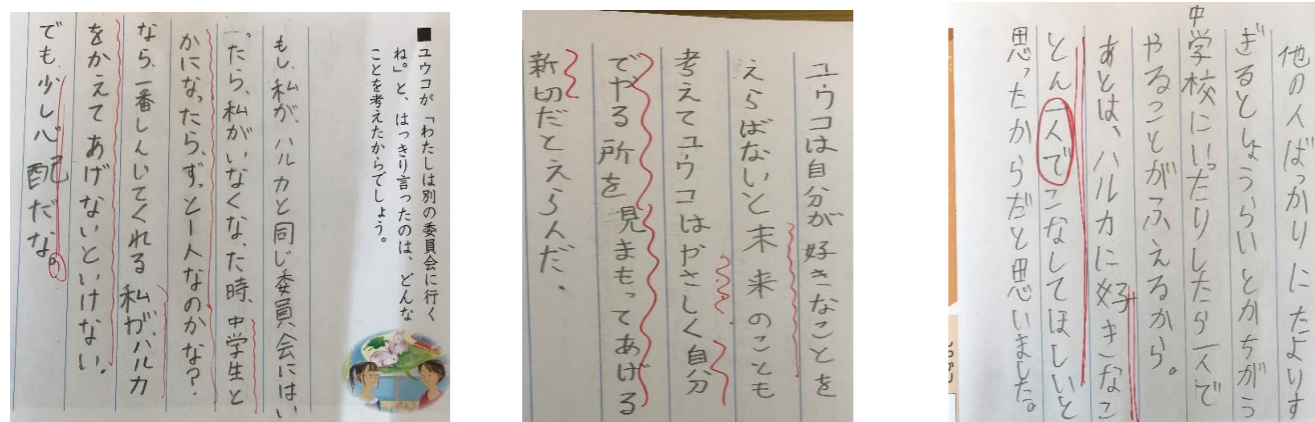 ■ユウコが「わたしは別の委員会に行く
ね。」と、はっきり言ったのは、どんな
ことを考えたからでしょう。
もし、私が、ハルカと同じ委員会にはい
ったら、私がいなくなった時、中学生と
かになったら、ずっと一人なのかな?
なら、一番しんいてくれる私が、ハルカ
をかえてあげないといけない。
でも、少し心配だな。
ユウコは自分が好きなことを
えらばないと末来のことも
考えてユウコはやさしく自分
でやる所を見まもってあげる
新切だとえらんだ.
他の人ばっかりにたよりす
ぎるとしょうらいとかちがう
中学校にいったりしたら一人で
やることがふえるから。
あとは、ハルカに好きなこ
とん一人でこなしてほしいと
思ったからだと思いました。